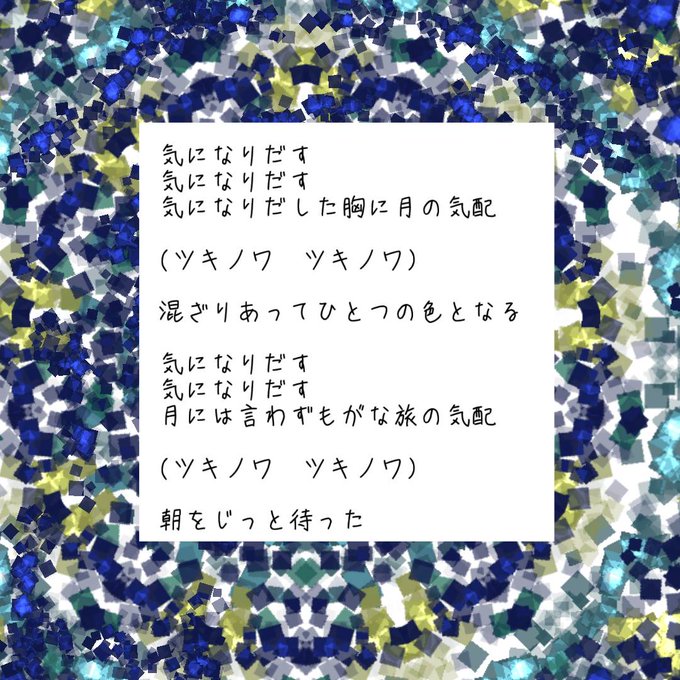 気になりだす
気になりだす
気になりだした胸に月の気配
(ツキノワ　ツキノワ)
混ざりあってひとつの色となる
気になりだす
気になりだす
月には言わずもがな旅の気配
(ツキノワ　ツキノワ)
朝をじっと待った